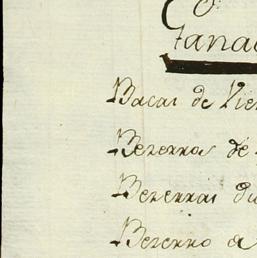 O
Bacas de Vie
Bezerros de
Bezerras du
Bezerro a